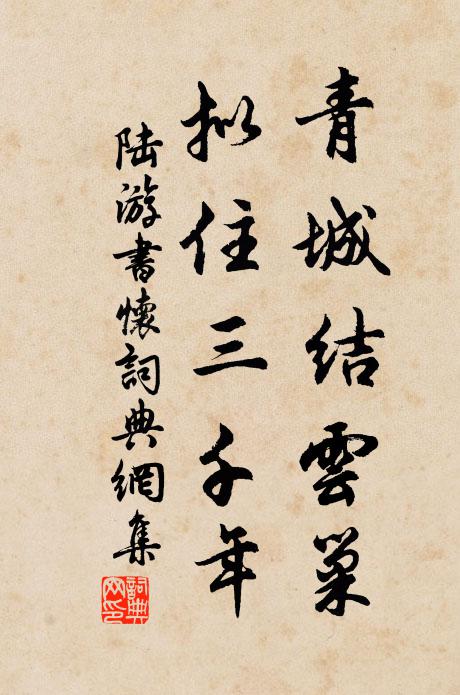 青城結雲巢
拟住三千年
陆游書懷詞典網集
詞典网印